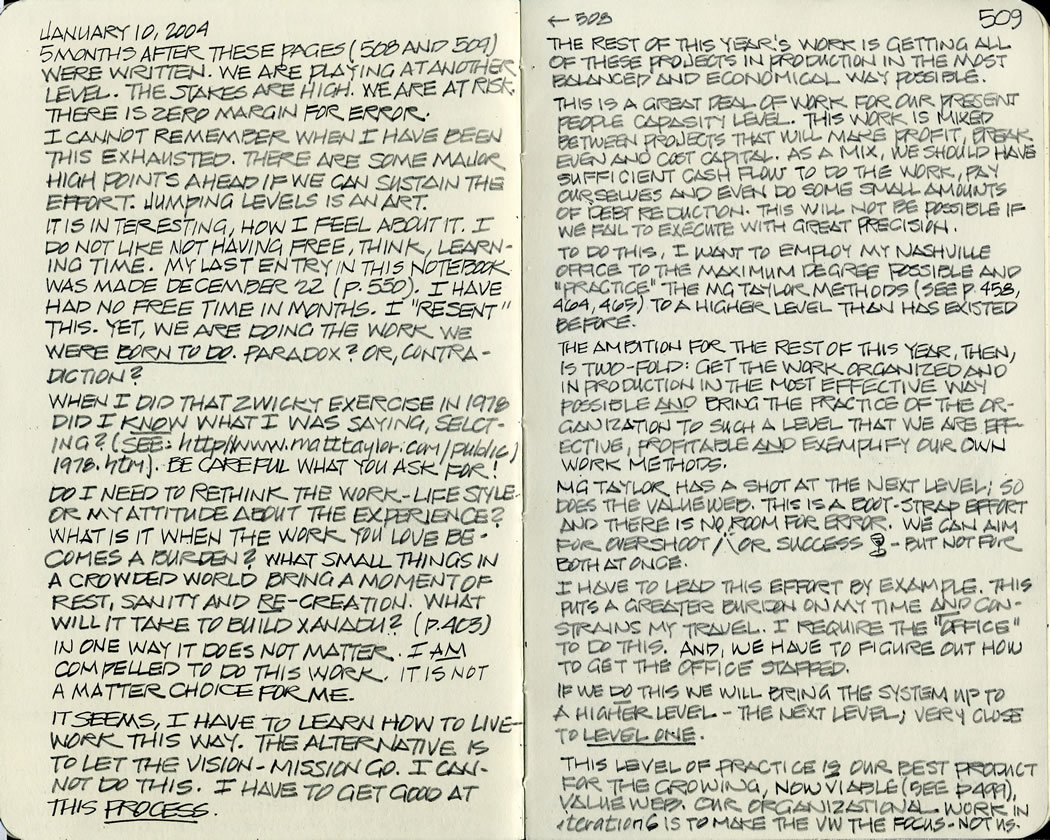 JANUARY 10, 2004
5 MONTHS AFTER THESE PAGES (508 AND 509)
WERE WRITTEN. WE ARE PLAYING AT ANOTHER
LEVEL. THE STAKES ARE HIGH. WE ARE AT RISK.
THERE IS ZERO MARGIN FOR ERROR.
I CANNOT REMEMBER WHEN I HAVE BEEN
THIS EXHAUSTED. THERE ARE SOME MAJOR
HIGH POINTS AHEAD IF WE CAN SUSTAIN THE
EFFORT. JUMPING LEVELS IS AN ART.
IT IS INTERESTING, HOW I FEEL ABOUT IT. I
DO NOT LIKE NOT HAVING FREE, THINK, LEARN-
ING TIME. MY LAST ENTRY IN THIS NOTEBOOK
WAS MADE DECEMBER 22 (P. 550). I HAVE
HAD NO FREE TIME IN MONTHS. I "RESENT"
THIS. YET, WE ARE DOING THE WORK WE
WERE BORN TO DO. PARADOX? OR, CONTRA-
DICTION?
WHEN I DID THAT ZWICKY EXERCISE IN 1978
DID I KNOW WHAT I WAS SAYING, SELCT-
ING? (SEE: http//www.matttaylor.com/public/
1978.htm). BE CAREFUL WHAT YOU ASK FOR!
DO I NEED TO RETHINK THE WORK-LIFE STYLE
OR MY ATTITUDE ABOUT THE EXPERIENCE?
WHAT IS IT WHEN THE WORK YOU LOVE BE-
COMES A BURDEN? WHAT SMALL THINGS IN
A CROWDED WORLD BRING A MOMENT OF
REST, SANITY AND RE-CREATION. WHAT
WILL IT TAKE TO BUILD XANADU? (P.403)
IN ONE WAY IT DOES NOT MATTER. I AM
COMPELLED TO DO THIS WORK. IT IS NOT
A MATTER CHOICE FOR ME.
IT SEEMS, I HAVE TO LEARN HOW TO LIVE-
WORK THIS WAY. THE ALTERNATIVE IS
TO LET THE VISION-MISSION GO. I CAN-
NOT DO THIS. I HAVE TO GET GOOD AT
THIS PROCESS.
← 508
509
THE REST OF THIS YEAR'S WORK IS GETTING ALL
OF THESE PROJECTS IN PRODUCTION IN THE MOST
BALANCED AND ECONOMICAL WAY POSSIBLE.
THIS IS A GREAT DEAL OF WORK FOR OUR PRESENT
PEOPLE CAPASITY LEVEL. THIS WORK IS MIXED
BETWEEN PROJECTS THAT WILL MAKE PROFIT, BREAK
EVEN AND COST CAPITAL. AS A MIX, WE SHOULD HAVE
SUFFICIENT CASH FLOW TO DO THE WORK, PAY
OURSELVES AND EVEN DO SOME SMALL AMOUNTS
OF DEBT REDUCTION. THIS WILL NOT BE POSSIBLE IF
WE FAIL TO EXECUTE WITH GREAT PRECISION.
TO DO THIS, I WANT TO EMPLOY MY NASHVILLE
OFFICE TO THE MAXIMUM DEGREE POSSIBLE AND
"PRACTICE" THE MG TAYLOR METHODS (SEE P. 458,
464, 465) TO A HIGHER LEVEL THAN HAS EXISTED
BEFORE.
THE AMBITION FOR THE REST OF THIS YEAR, THEN,
IS TWO-FOLD: GET THE WORK ORGANIZED AND
IN PRODUCTION IN THE MOST EFFECTIVE WAY
POSSIBLE AND BRING THE PRACTICE OF THE OR-
GANIZATION TO SUCH A LEVEL THAT WE ARE EFF-
ECTIVE, PROFITABLE AND EXEMPLIFY OUR OWN
WORK METHODS.
MG TAYLOR HAS A SHOT AT THE NEXT LEVEL; SO
DOES THE VALUEWEB. THIS IS A BOOT-STRAP EFFORT
AND THERE IS NO ROOM FOR ERROR. WE CAN AIM
FOR OVERSHOOT OR SUCCESS - BUT NOT FOR
BOTH AT ONCE.
I HAVE TO LEAD THIS EFFORT BY EXAMPLE. THIS
PUTS A GREATER BURDEN ON MY TIME AND CON-
STRAINS MY TRAVEL. I REQUIRE THE "OFFICE"
TO DO THIS. AND, WE HAVE TO FIGURE OUT HOW
TO GET THE OFFICE STAFFED.
IF WE DO THIS WE WILL BRING THE SYSTEM UP TO
A HIGHER LEVEL - THE NEXT LEVEL; VERY CLOSE
TO LEVEL ONE.
THIS LEVEL OF PRACTICE IS OUR BEST PRODUCT
FOR THE GROWING, NOW VIABLE (SEE P499),
VALUE WEB. OUR ORGANIZATIONAL WORK IN
iteration 6 IS TO MAKE THE VW THE FOCUS - NOT US.